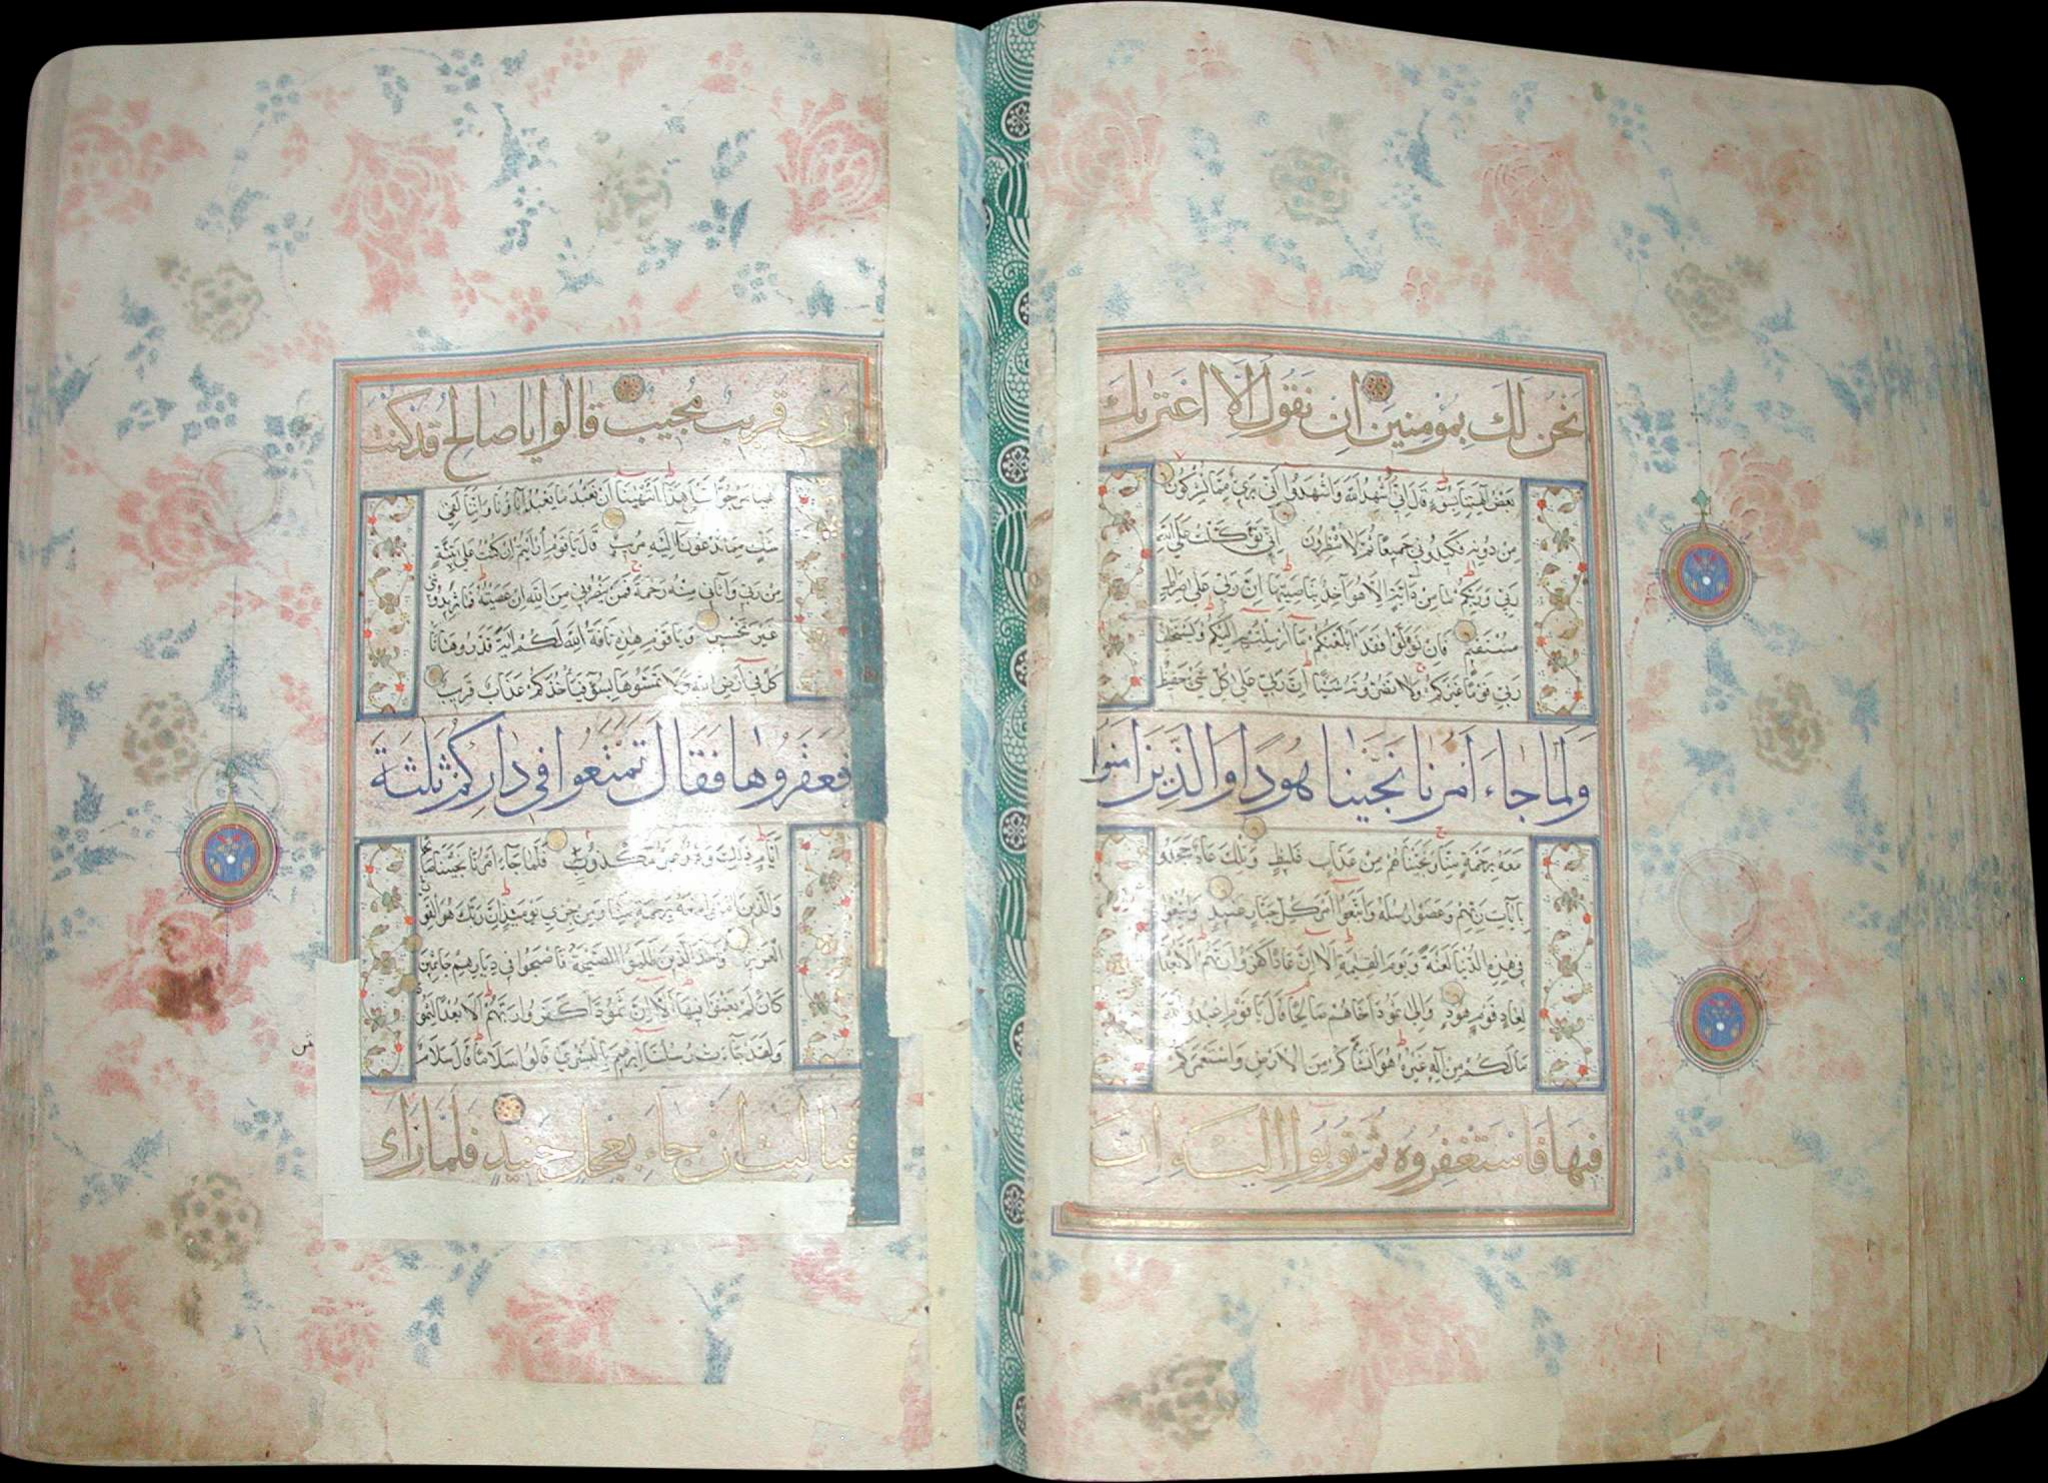 نحن لك بمومنين ان نقول الا اعتريك
بعض آلهتنا بسوء قال اني اشهد الله واشهدوا اني برئ مما تشركون
من دونه فكيدوني جميعا ثم لا تنظرون اني توكلت على الله
ربي وربكم ما من دآبة الا هو آخذ بناصيتها ان ربي على صراط
مستقيم فان تولوا فقد ابلغتكم ما ارسلت به اليكم ويستخلف
ربي قوما غيركم ولا تضرونه شيئا ان ربي على كل شئ حفيظ
ولما جاء امرنا نجينا هودا والذين امنوا
معه برحمة منا ونجيناهم من عذاب غليظ وتلك عاد جحدوا
بايات ربهم وعصوا رسله واتبعوا امر كل جبار عنيد واتبعوا
في هذه الدنيا لعنة ويوم القيمة الا ان عادا كفروا ربهم الا بعدا
لعاد قوم هود والى ثمود اخاهم صالحا قال يا قوم اعبدوا الله
ما لكم من اله غيره هو انشأكم من الارض واستعمركم
فيها فاستغفروه ثم توبوا اليه ان
ربي قريب مجيب قالوا يا صالح قد كنت
فينا مرجوا قبل هذا اتنهينا ان نعبد ما يعبد آباؤنا واننا لفي
شك مما تدعونا اليه مريب قال يا قوم ارايتم ان كنت على بينة
من ربي وآتاني منه رحمة فمن ينصرني من الله ان عصيته فما تزيدونني
غير تخسير ويا قوم هذه ناقة الله لكم آية فذروها تأ
كل في ارض الله ولا تمسوها بسوء فيأخذكم عذاب قريب
فعقروها فقال تمتعوا في داركم ثلثة
ايام ذلك وعد غير مكذوب فلما جاء امرنا نجينا صالحا
والذين امنوا معه برحمة منا ومن خزي يومئذ ان ربك هو القوي
العزيز واخذ الذين ظلموا الصيحة فاصبحوا في ديارهم جاثمين
كان لم يغنوا فيها الا ان ثمودا كفروا ربهم الا بعدا لثمود
ولقد جاءت رسلنا ابرهيم بالبشرى قالوا سلاما قال سلام
فما لبث ان جاء بعجل حنيذ فلما راى